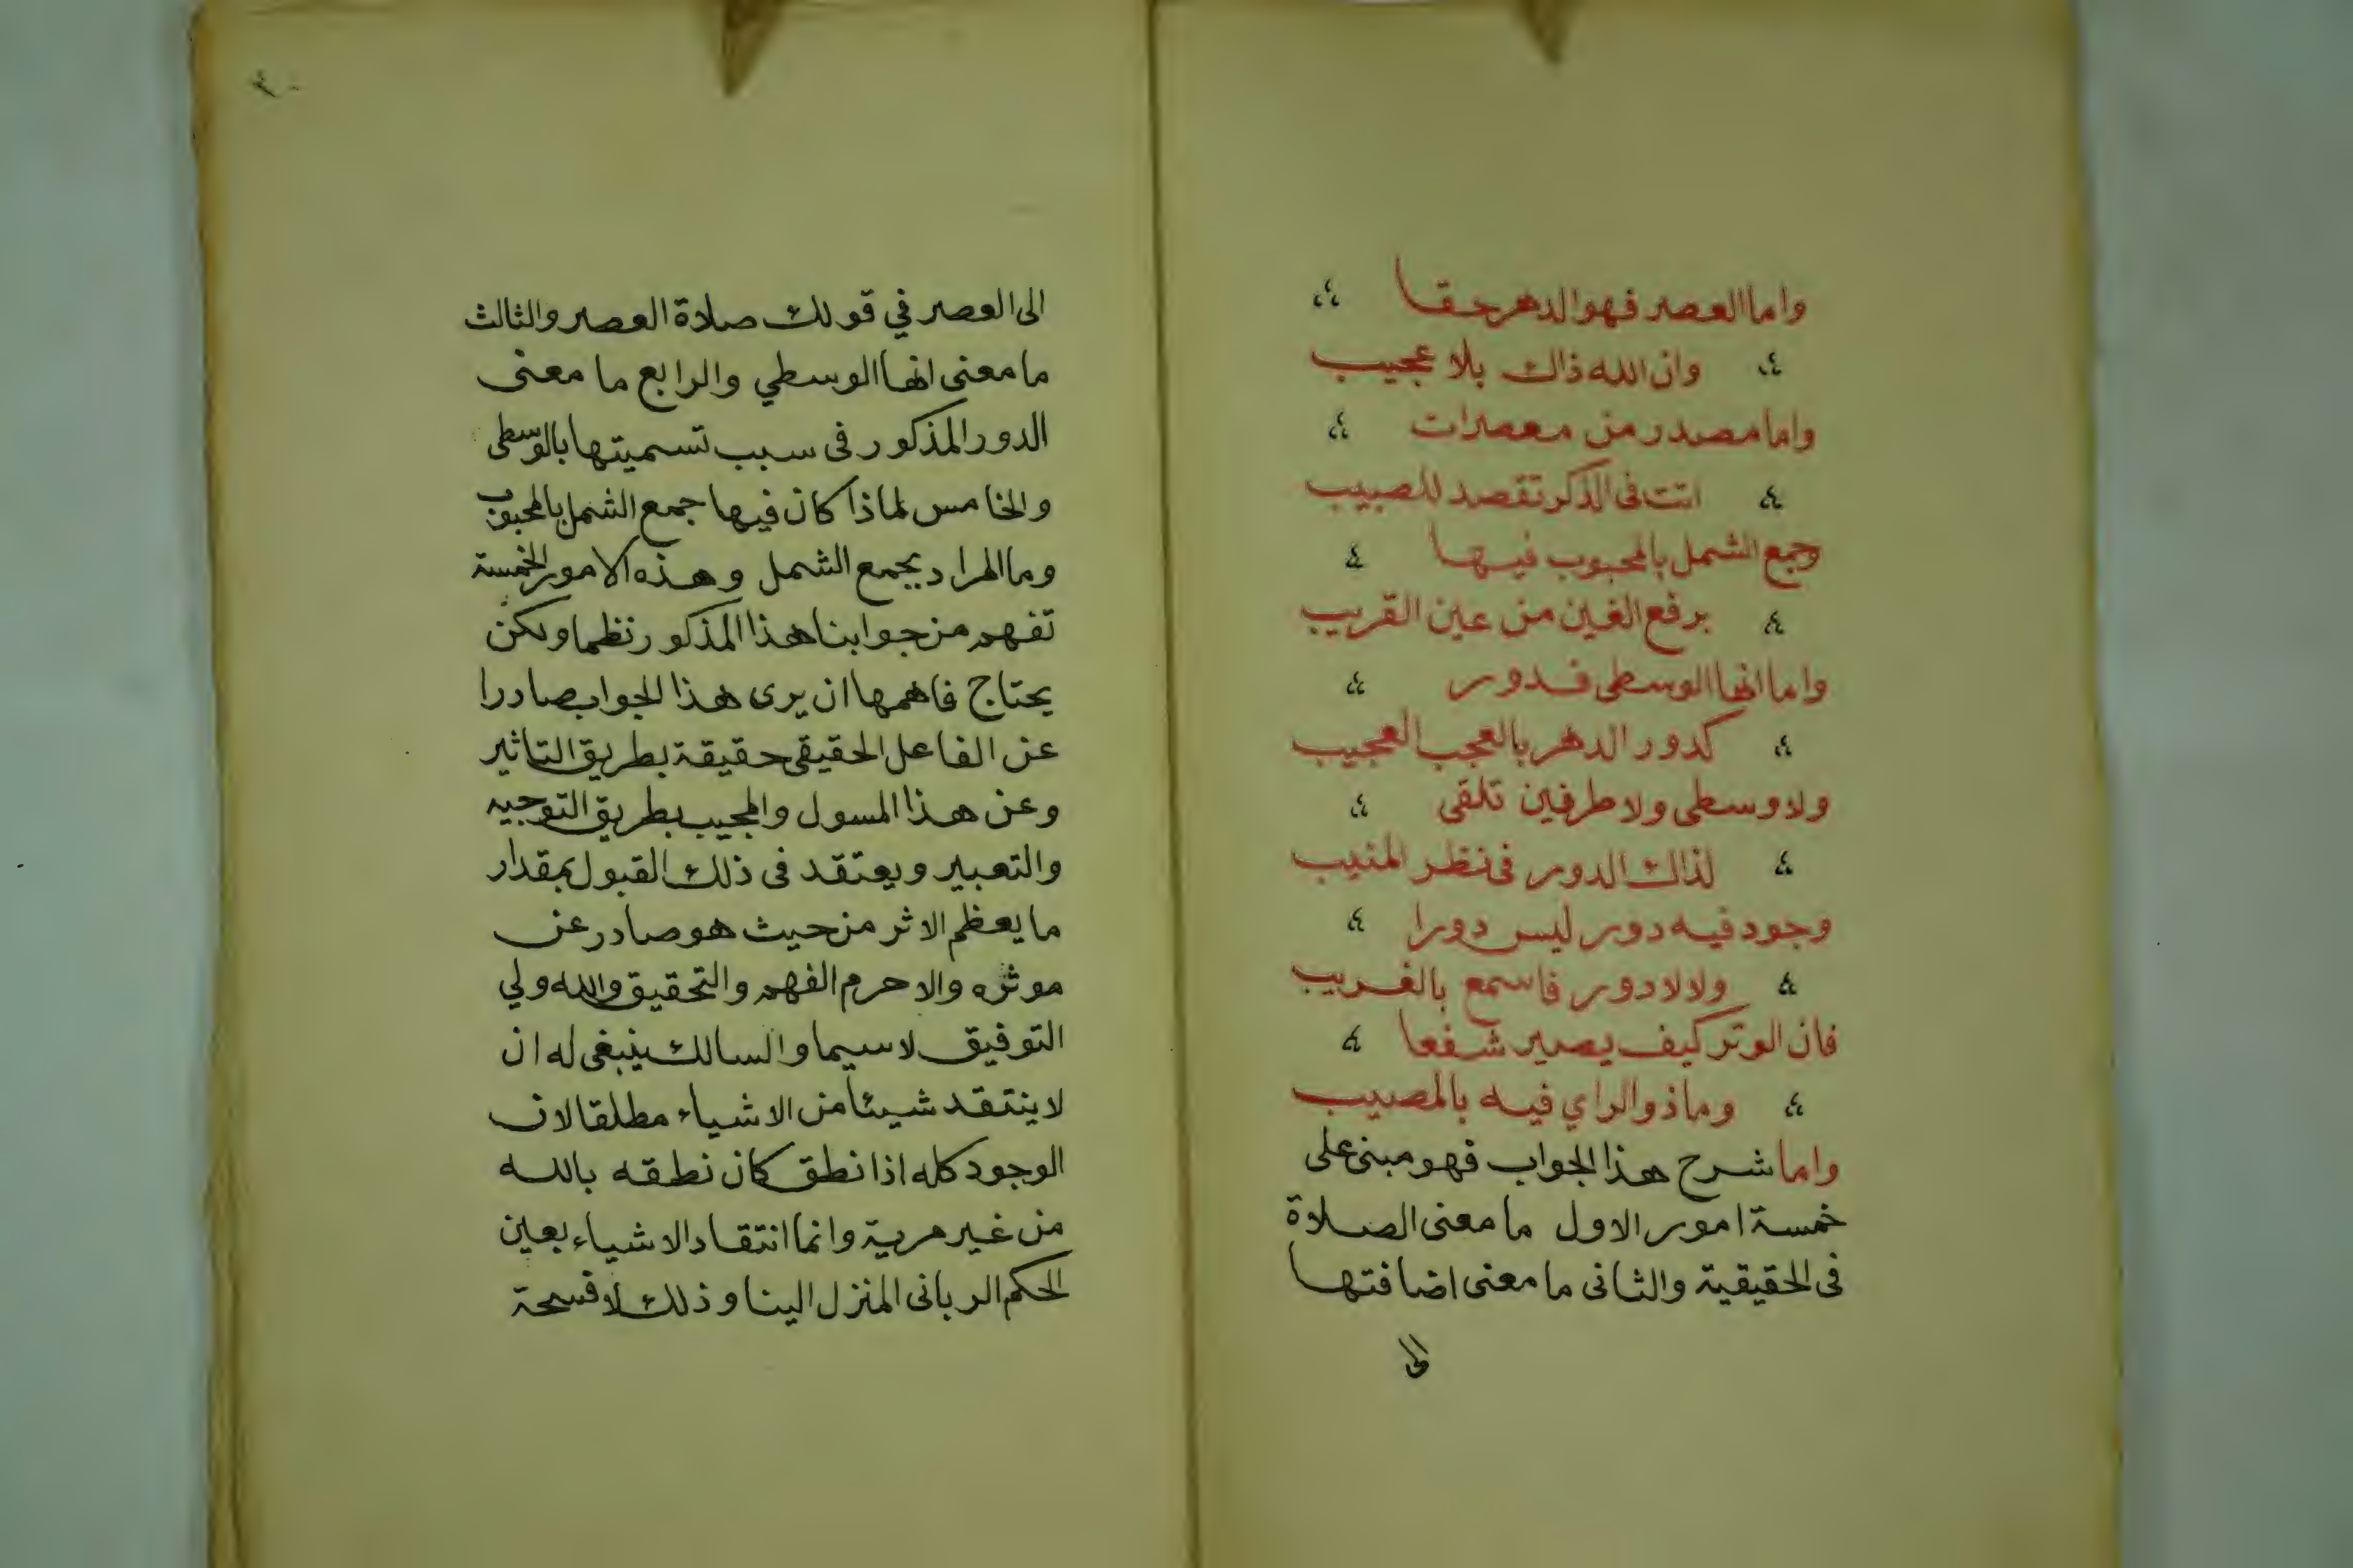 واما العصر فهو الدهر حقا
وان الله ذاك بلا عجيب
واما مصدر من معصرات
اتت في الذكر تقصد للصبيب
وجمع الشمل بالمحبوب فيها
برفع الغين من عين القريب
واما انها الوسطى فدور
كدور الدهر بالعجب العجيب
ولا وسطى ولا طرفين تلقى
لذاك الدور في نظر المنيب
وجود فيه دور ليس دورا
ولا لا دور فاسمع بالغريب
فان الوتر كيف يصير شفعا
وما ذو الراي فيه بالمصيب
واما شرح هذا الجواب فهو مبنى على
خمسة امور الاول ما معنى الصلاة
في الحقيقية والثانى ما معنى اضافتها
الى
الى العصر في قولك صلاة العصر والثالث
ما معنى انها الوسطي والرابع ما معنى
الدور المذكور فى سبب تسميتها بالوسطى
والخامس لماذا كان فيها جمع الشمل بالمحبوب
وما المراد بجمع الشمل وهذه الامور الخمسة
تفهم من جوابنا هذا المذكور نظما ولكن
يحتاج فاهمها ان يرى هذا الجواب صادرا
عن الفاعل الحقيقى حقيقة بطريق التاثير
وعن هذا المسول والمجيب بطريق التوجيه
والتعبير ويعتقد فى ذلك القبول بمقدار
ما يعظم الاثر من حيث هو صادر عن
موثره والا حرم الفهم والتحقيق والله ولي
التوفيق لا سيما والسالك ينبغى له ان
لا ينتقد شيئا من الاشياء مطلقا لان
الوجود كله اذا نطق كان نطقه بالله
من غير مرية وانما انتقاد الاشياء بعين
الحكم الربانى المنزل الينا وذلك لا فسحة